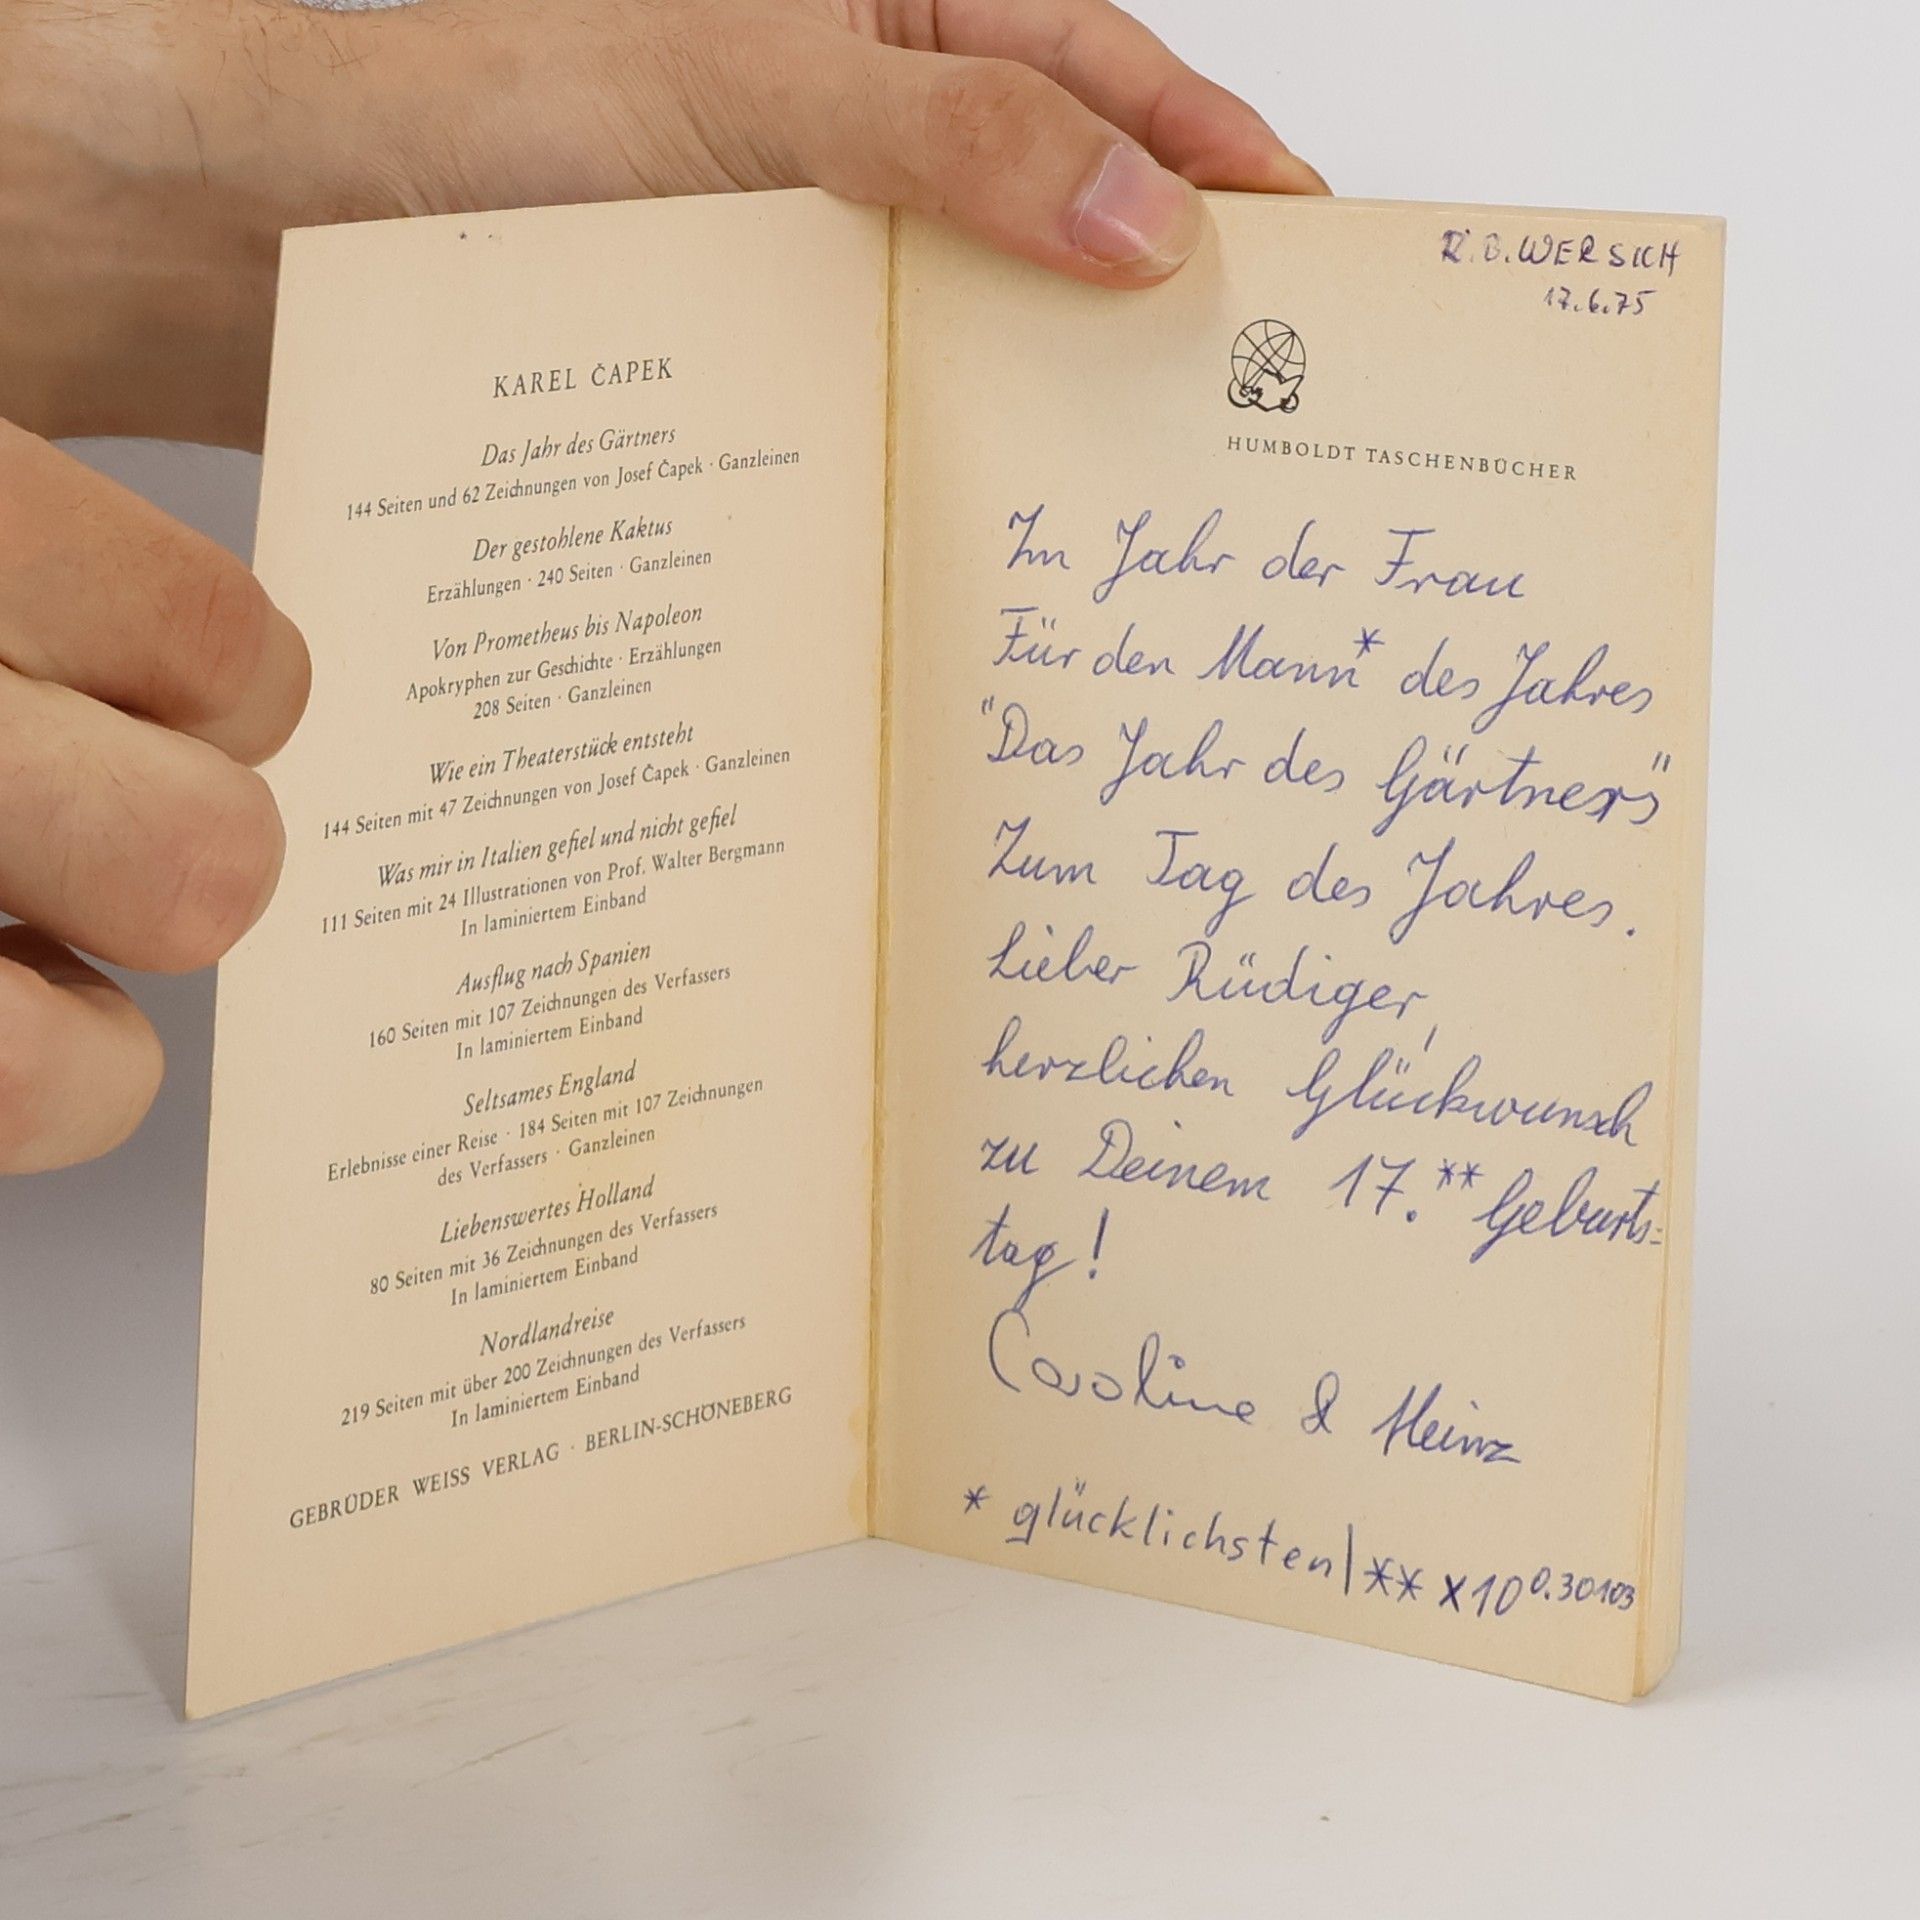 KAREL ČAPEK
Das Jahr des Gärtners
144 Seiten und 62 Zeichnungen von Josef Čapek · Ganzleinen
Der gestohlene Kaktus
Erzählungen · 240 Seiten · Ganzleinen
Von Prometheus bis Napoleon
Apokryphen zur Geschichte · Erzählungen
208 Seiten · Ganzleinen
Wie ein Theaterstück entsteht
144 Seiten mit 47 Zeichnungen von Josef Čapek · Ganzleinen
Was mir in Italien gefiel und nicht gefiel
111 Seiten mit 24 Illustrationen von Prof. Walter Bergmann
In laminiertem Einband
Ausflug nach Spanien
160 Seiten mit 107 Zeichnungen des Verfassers
In laminiertem Einband
Seltsames England
Erlebnisse einer Reise · 184 Seiten mit 107 Zeichnungen
des Verfassers · Ganzleinen
Liebenswertes Holland
80 Seiten mit 36 Zeichnungen des Verfassers
In laminiertem Einband
Nordlandreise
219 Seiten mit über 200 Zeichnungen des Verfassers
In laminiertem Einband
GEBRÜDER WEISS VERLAG · BERLIN-SCHÖNEBERG
R.B. WERSICH
17.6.75
HUMBOLDT TASCHENBÜCHER
Im Jahr der Frau
Für den Mann* des Jahres
"Das Jahr des Gärtners"
Zum Tag des Jahres.
Lieber Rüdiger,
herzlichen Glückwunsch
zu Deinem 17.** Geburts=
tag!
Caroline & Heinz
* glücklichsten | ** x10^0.30103